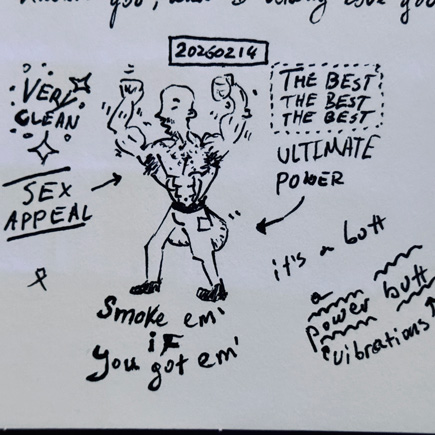 you,
20260214
VERY
CLEAN
THE BEST
THE BEST
THE BEST
ULTIMATE
POWER
SEX
APPEAL
it's a butt
a
power butt
(vibrations)
Smoke em'
if
You got em'